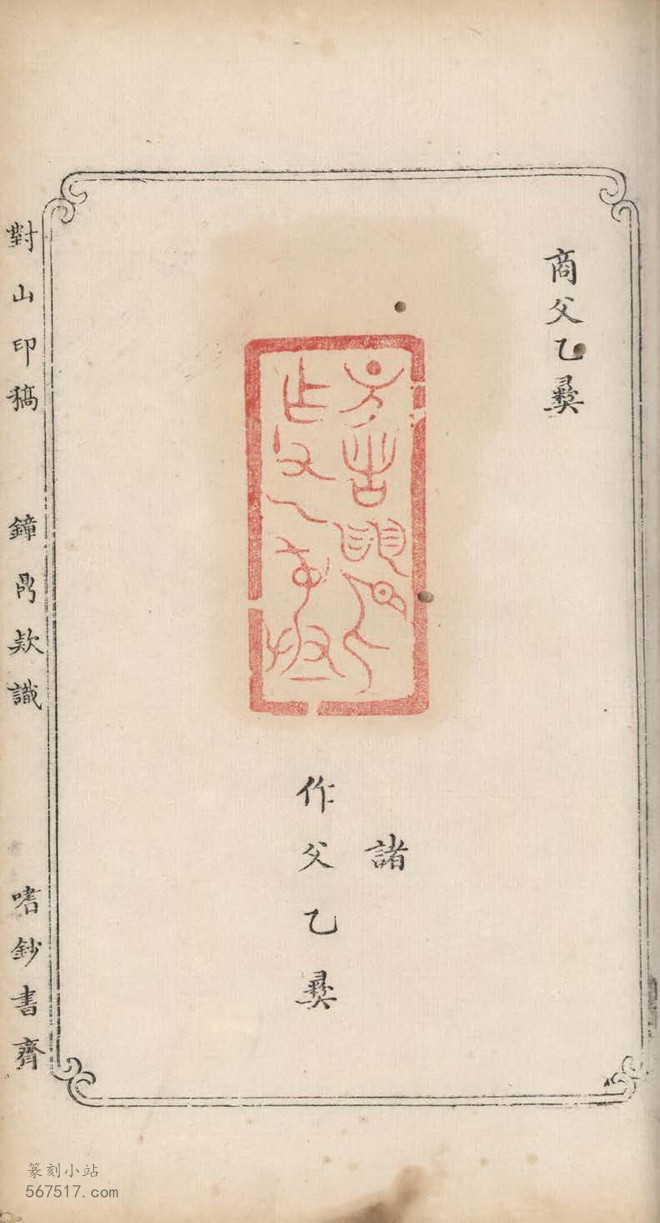 商父乙彝
諸
作父乙彝
對山印稿 鐘鼎欵識 嗜鈔書齋
篆刻小站
567517.com